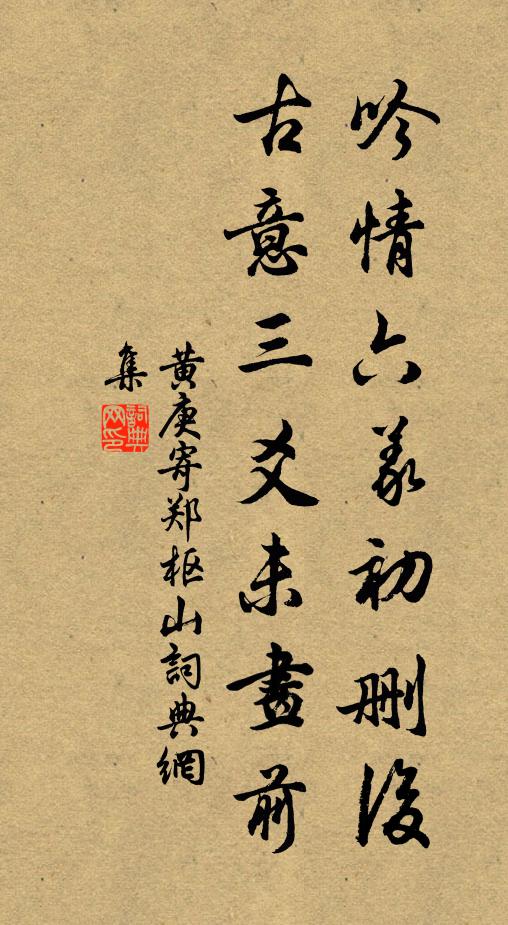 吟情六義初删後
古意三爻未畫前
黄庚寄郑枢山詞典網
集
詞典网印